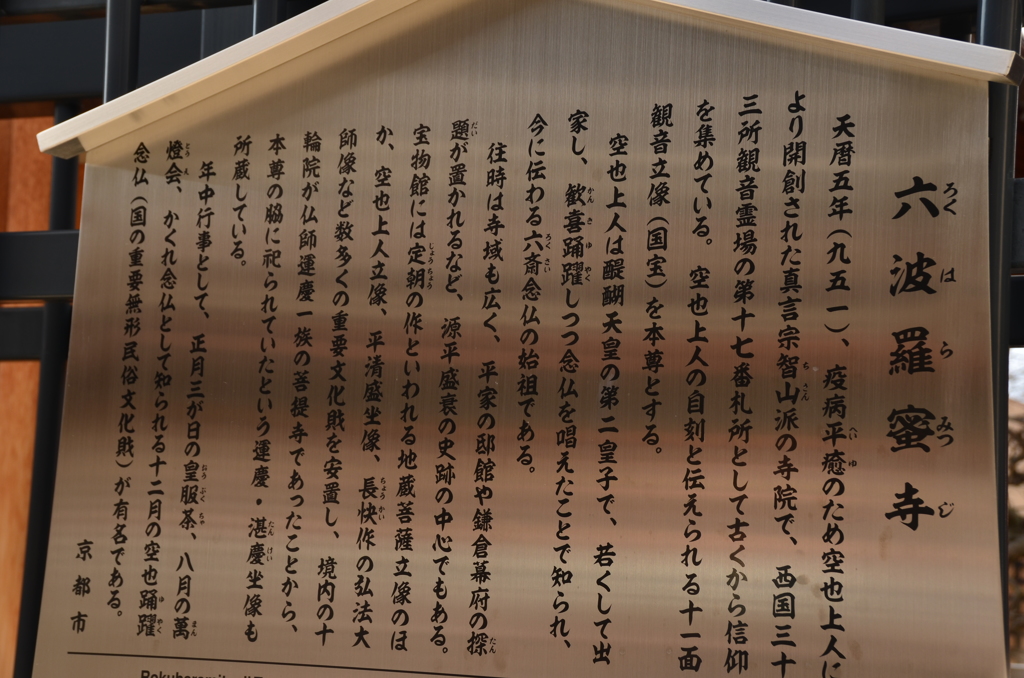 六波羅蜜寺
ろくはらみつじ
天暦五年(九五一)、疫病平癒のため空也上人に
より開創された真言宗智山派の寺院で、西国三十
三所観音霊場の第十七番札所として古くから信仰
を集めている。空也上人の自刻と伝えられる十一面
観音立像(国宝)を本尊とする。
空也上人は醍醐天皇の第二皇子で、若くして出
家し、歓喜踊躍しつつ念仏を唱えたことで知られ、
今に伝わる六斎念仏の始祖である。
往時は寺域も広く、平家の邸館や鎌倉幕府の探
題が置かれるなど、源平盛衰の史跡の中心でもある。
宝物館には定朝の作といわれる地蔵菩薩立像のほ
か、空也上人立像、平清盛坐像、長快作の弘法大
師像など数多くの重要文化財を安置し、境内の十
輪院が仏師運慶一族の菩提寺であったことから、
本尊の脇に祀られていたという運慶・湛慶坐像も
所蔵している。
年中行事として、正月三が日の皇服茶、八月の萬
燈会、かくれ念仏として知られる十二月の空也踊躍
念仏(国の重要無形民俗文化財)が有名である。
京都市